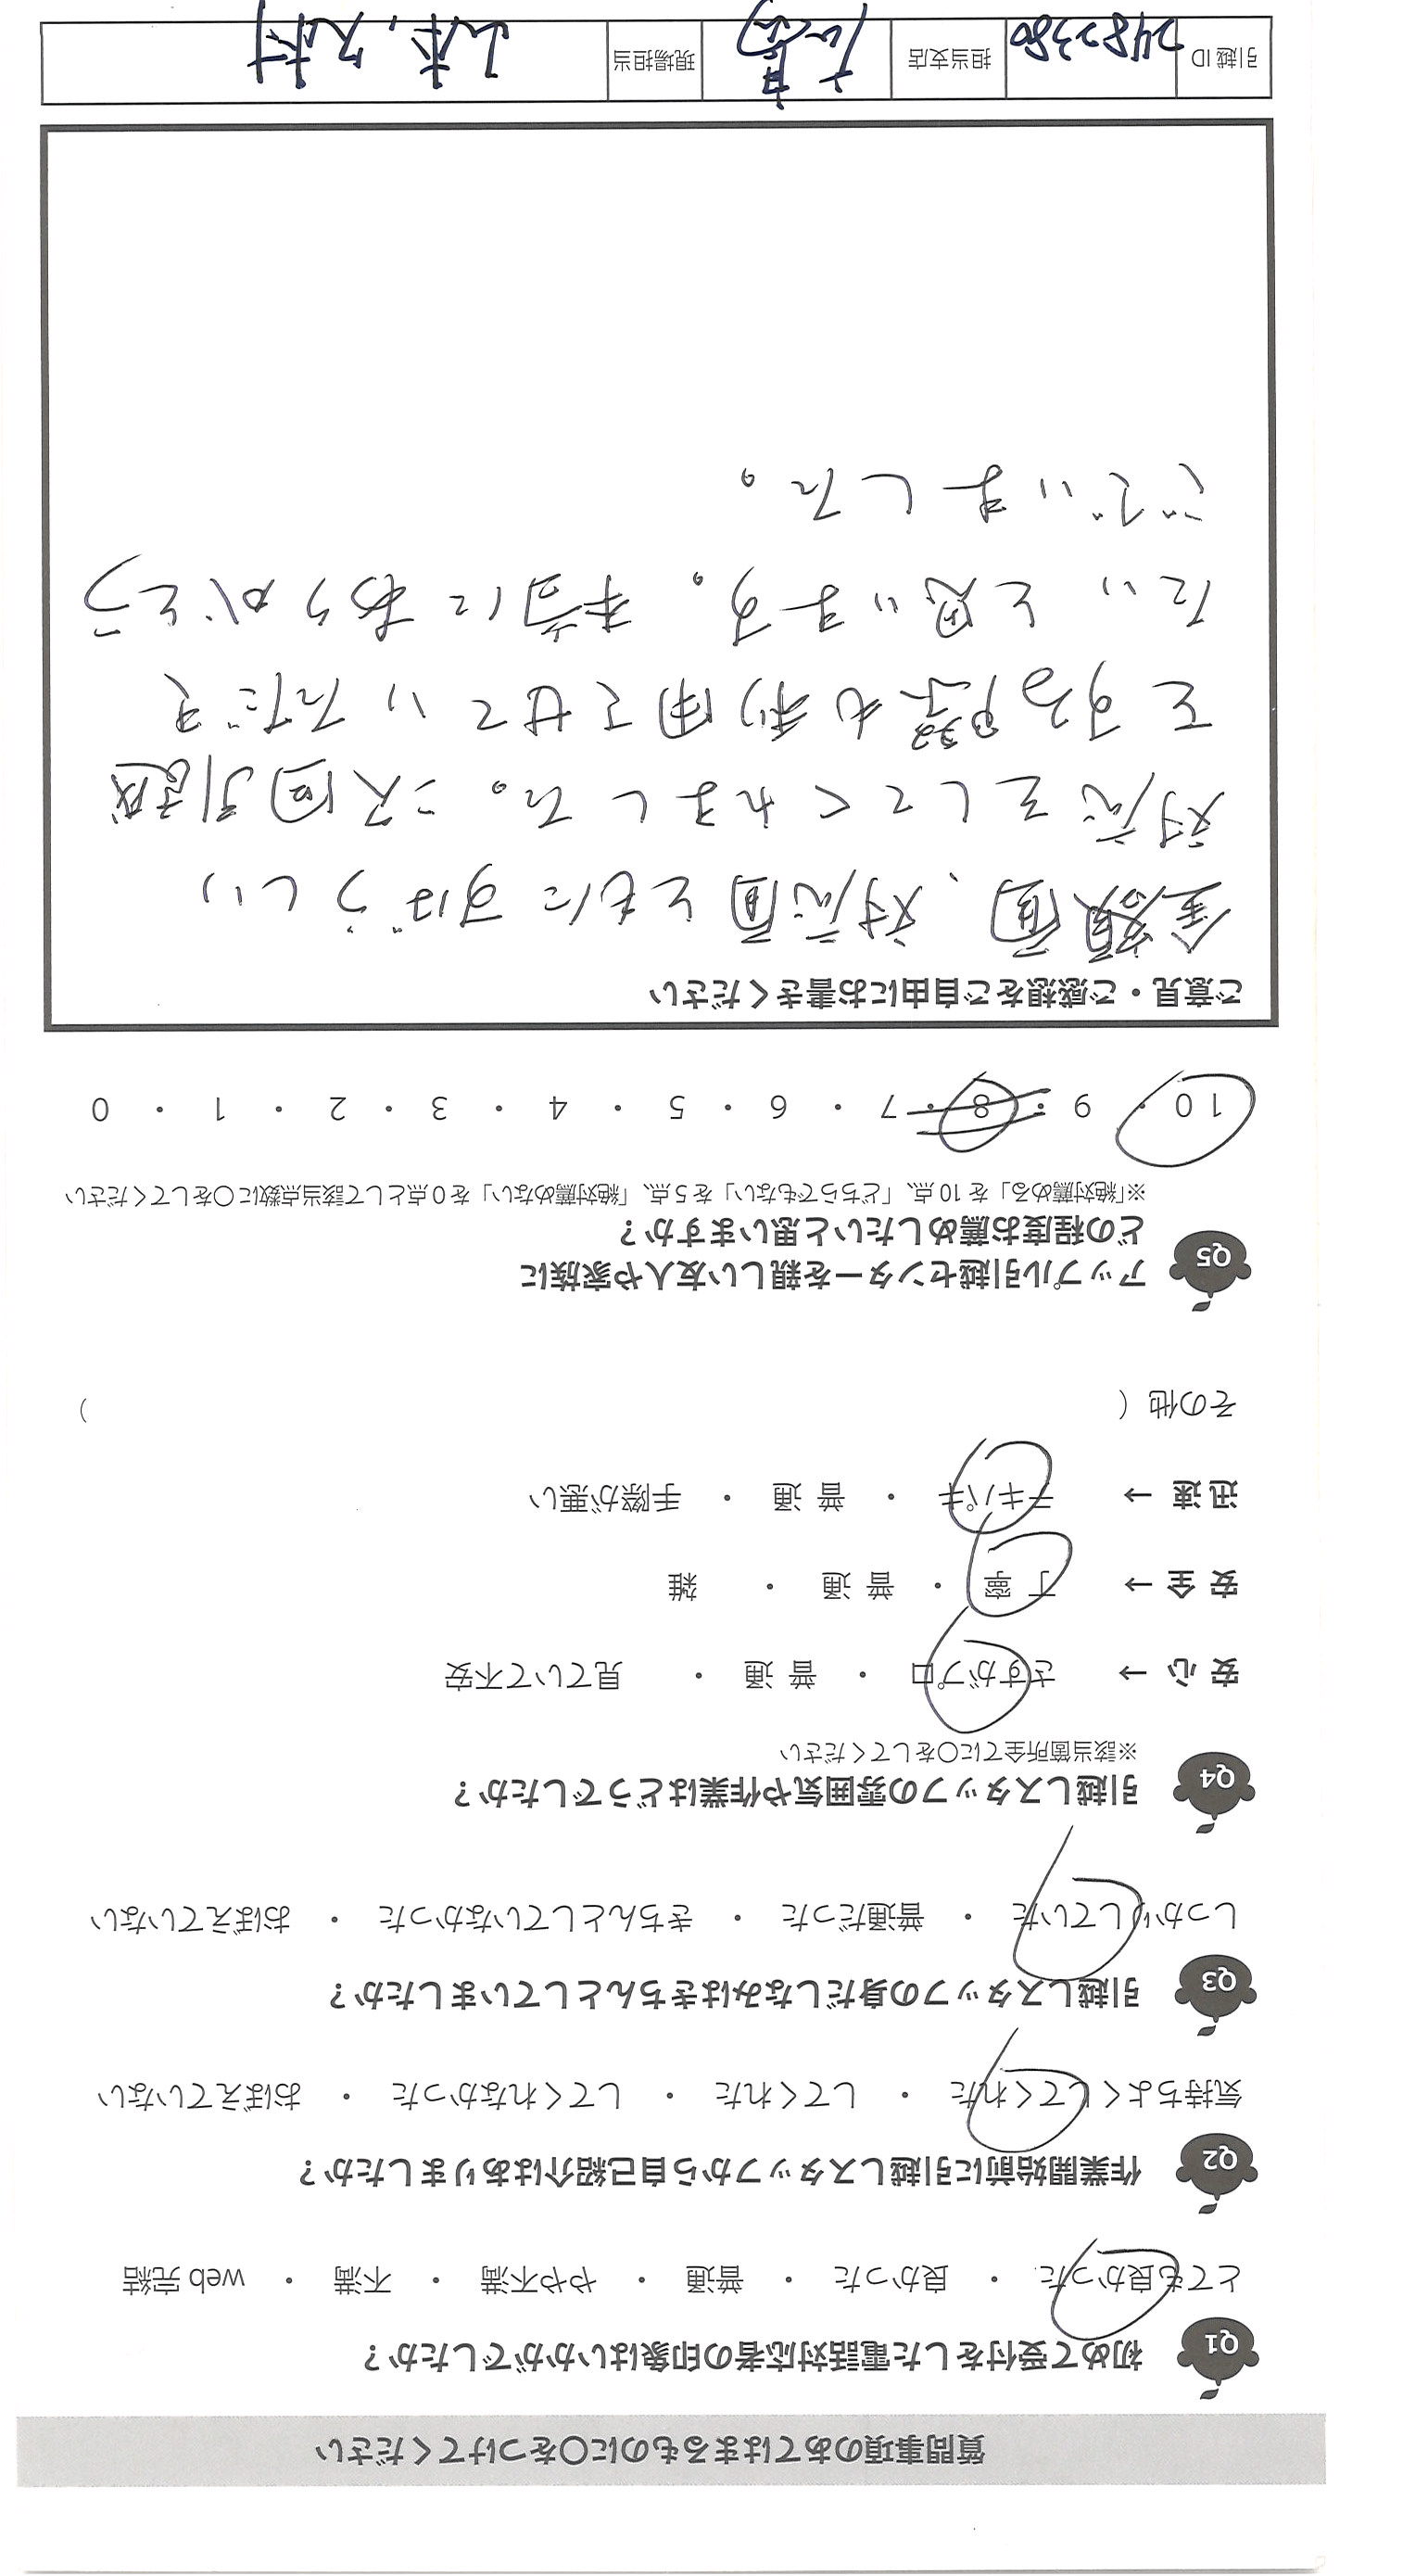 質問事項のあてはまるものに〇をつけてください
Q1 初めて受付をした電話対応者の印象はいかがでしたか？
とても良かった ・ 良かった ・ 普通 ・ やや不満 ・ 不満 ・ web 完結
Q2 作業開始前に引越しスタッフから自己紹介はありましたか？
気持ちよくしてくれた ・ してくれた ・ してくれなかった ・ おぼえていない
Q3 引越しスタッフの身だしなみはきちんとしていましたか？
しっかりしていた ・ 普通だった ・ きちんとしていなかった ・ おぼえていない
Q4 引越しスタッフの雰囲気や作業はどうでしたか？
※該当箇所全てに〇をしてください
安 心 → さすがプロ ・ 普 通 ・ 見ていて不安
安 全 → 丁 寧 ・ 普 通 ・ 雑
迅 速 → テキパキ ・ 普 通 ・ 手際が悪い
その他（ ）
Q5 アップル引越センターを親しい友人や家族に
どの程度お薦めしたいと思いますか？
※「絶対薦める」を 10 点、「どちらでもない」を 5 点、「絶対薦めない」を 0 点として該当点数に〇をしてください
10 ・ 9 ・ 8 ・ 7 ・ 6 ・ 5 ・ 4 ・ 3 ・ 2 ・ 1 ・ 0
ご意見・ご感想をご自由にお書きください
金額面、対応面ともにすばらしい
対応をしてくれました。次回引越
をする際も利用させていただき
たいと思います。本当にありがとう
ございました。
引越 ID 2482380 担当支店 現場担当